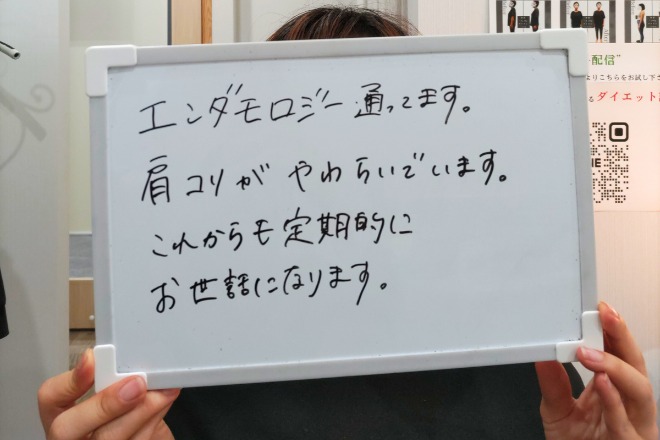 エンダモロジー通ってます。
肩コリがやわらいでいます。
これからも定期的に
お世話になります。
配信"
よりこちらをお試し下さ
るダイエット